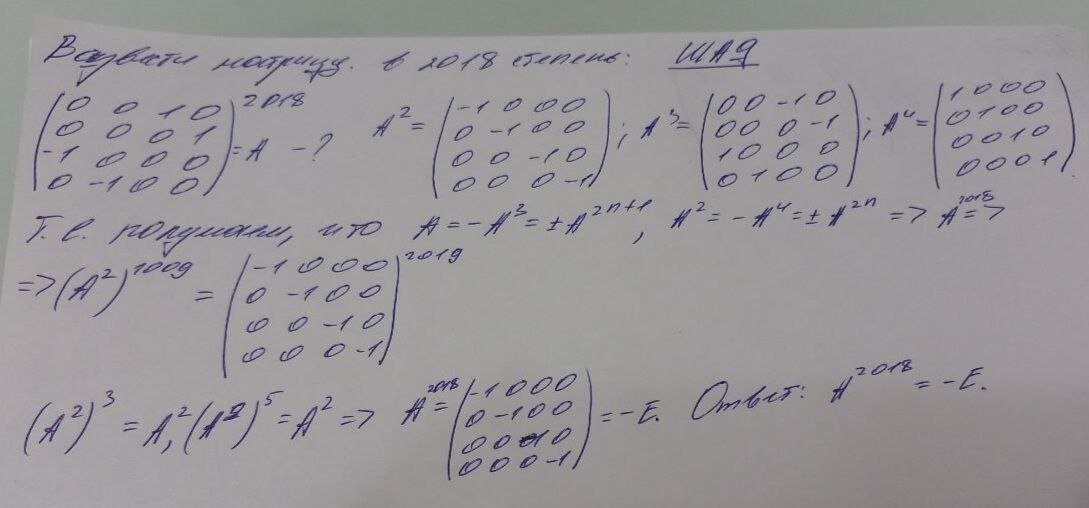 Возвести матрицу. в 2018 степень: ШАД
(0 0 1 0; 0 0 0 1; -1 0 0 0; 0 -1 0 0)^2018 = A - ? A^2 = (-1 0 0 0; 0 -1 0 0; 0 0 -1 0; 0 0 0 -1); A^3 = (0 0 -1 0; 0 0 0 -1; 1 0 0 0; 0 1 0 0); A^4 = (1 0 0 0; 0 1 0 0; 0 0 1 0; 0 0 0 1)
Т.е. получаем, что A = -A^3 = ±A^{2n+1}, A^2 = -A^4 = ±A^{2n} => A^2018 = >
=> (A^2)^1009 = (-1 0 0 0; 0 -1 0 0; 0 0 -1 0; 0 0 0 -1)^2019
(A^2)^3 = A^2, (A^2)^5 = A^2 => A^2018 = (-1 0 0 0; 0 -1 0 0; 0 0 -1 0; 0 0 0 -1) = -E. Ответ: A^2018 = -E.